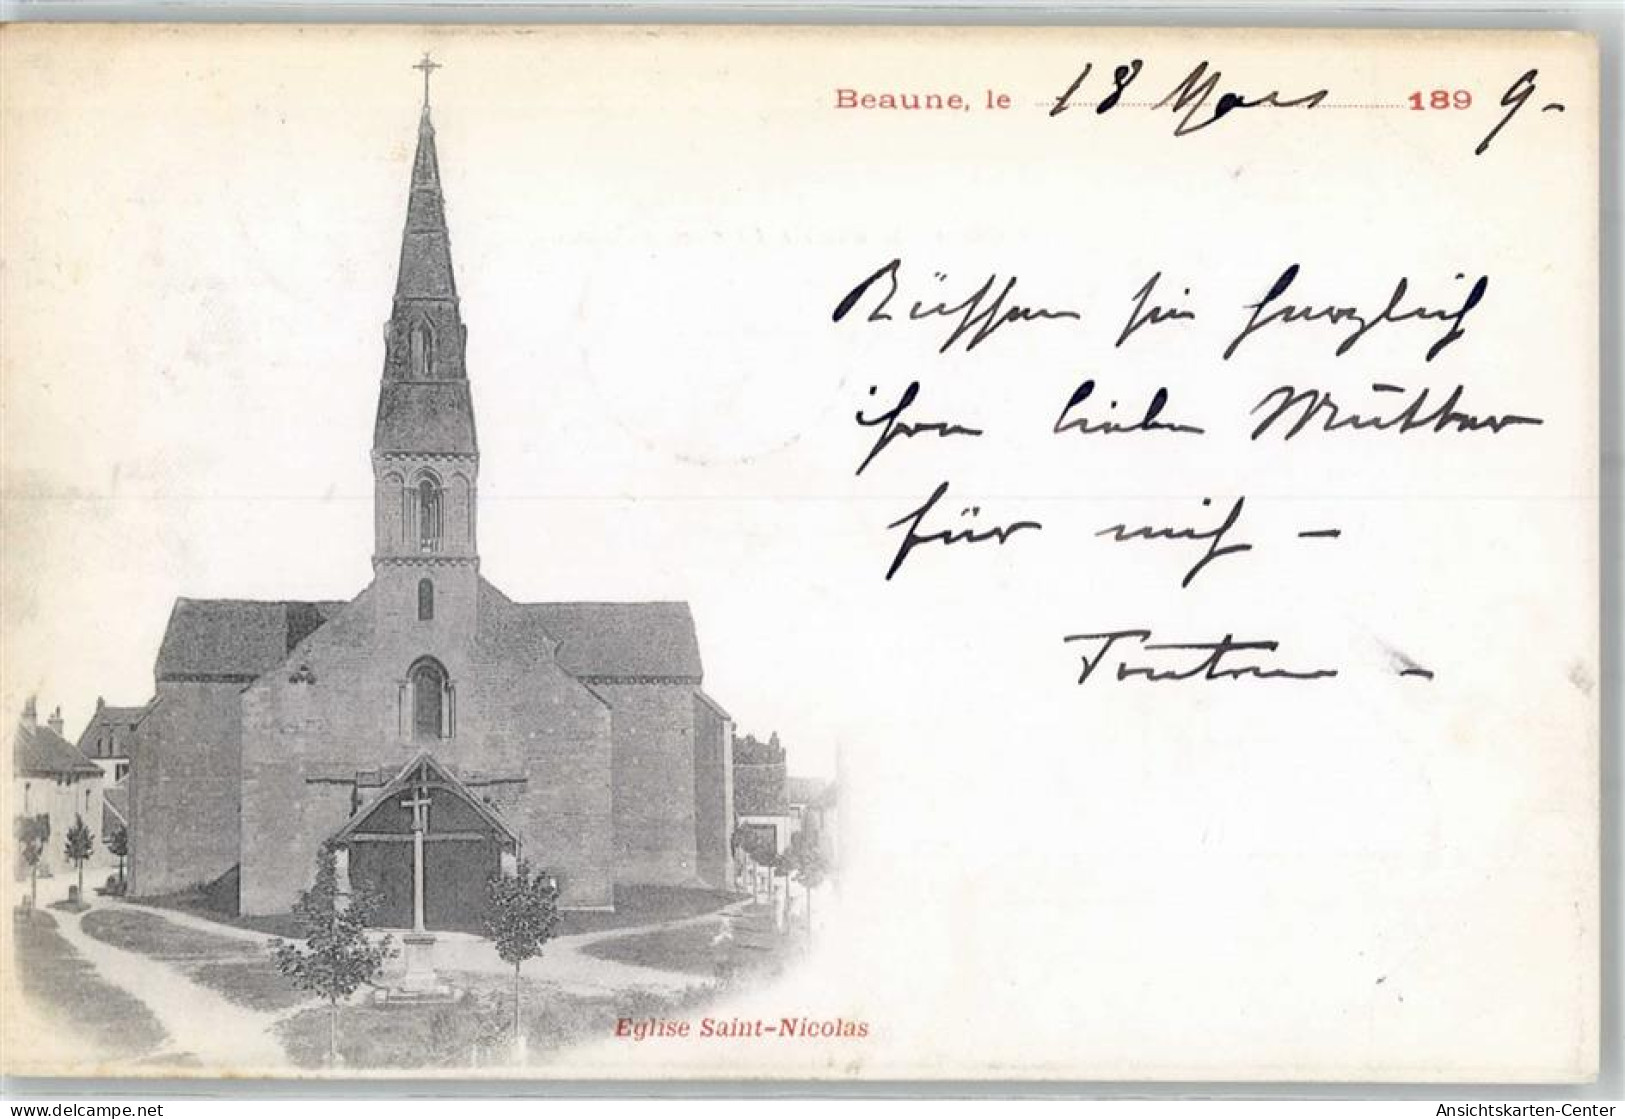 Beaune, le 18 Mars 1899-
Küssen sie herzlich
ihre liebe Mutter
für mich -
Eglise Saint-Nicolas
Ansichtskarten-Center